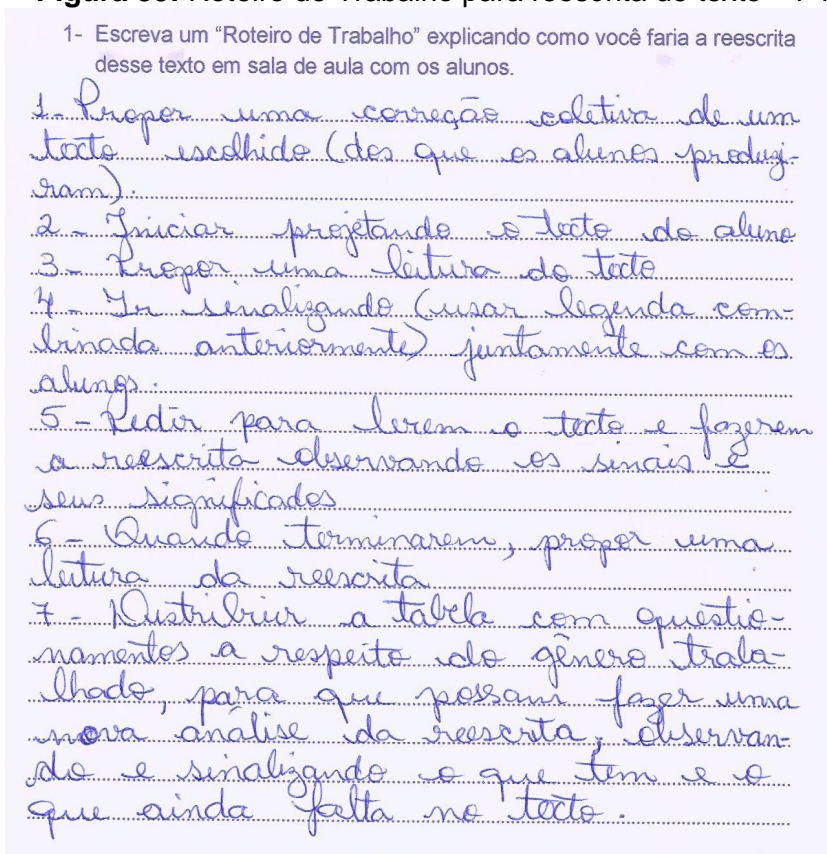 1- Escreva um “Roteiro de Trabalho” explicando como você faria a reescrita
desse texto em sala de aula com os alunos.
1- Propor uma correção coletiva de um
texto escolhido (dos que os alunos produzi-
ram).
2 - Iniciar projetando o texto do aluno
3 - Propor uma leitura do texto
4 - Ir sinalizando (usar legenda com-
binada anteriormente) juntamente com os
alunos.
5 - Pedir para lerem o texto e fazerem
a reescrita observando os sinais e
seus significados
6 - Quando terminarem, propor uma
leitura da reescrita
7 - Distribuir a tabela com questio-
namentos a respeito do gênero traba-
lhado, para que possam fazer uma
nova análise da reescrita, observan-
do e sinalizando o que tem e o
que ainda falta no texto.